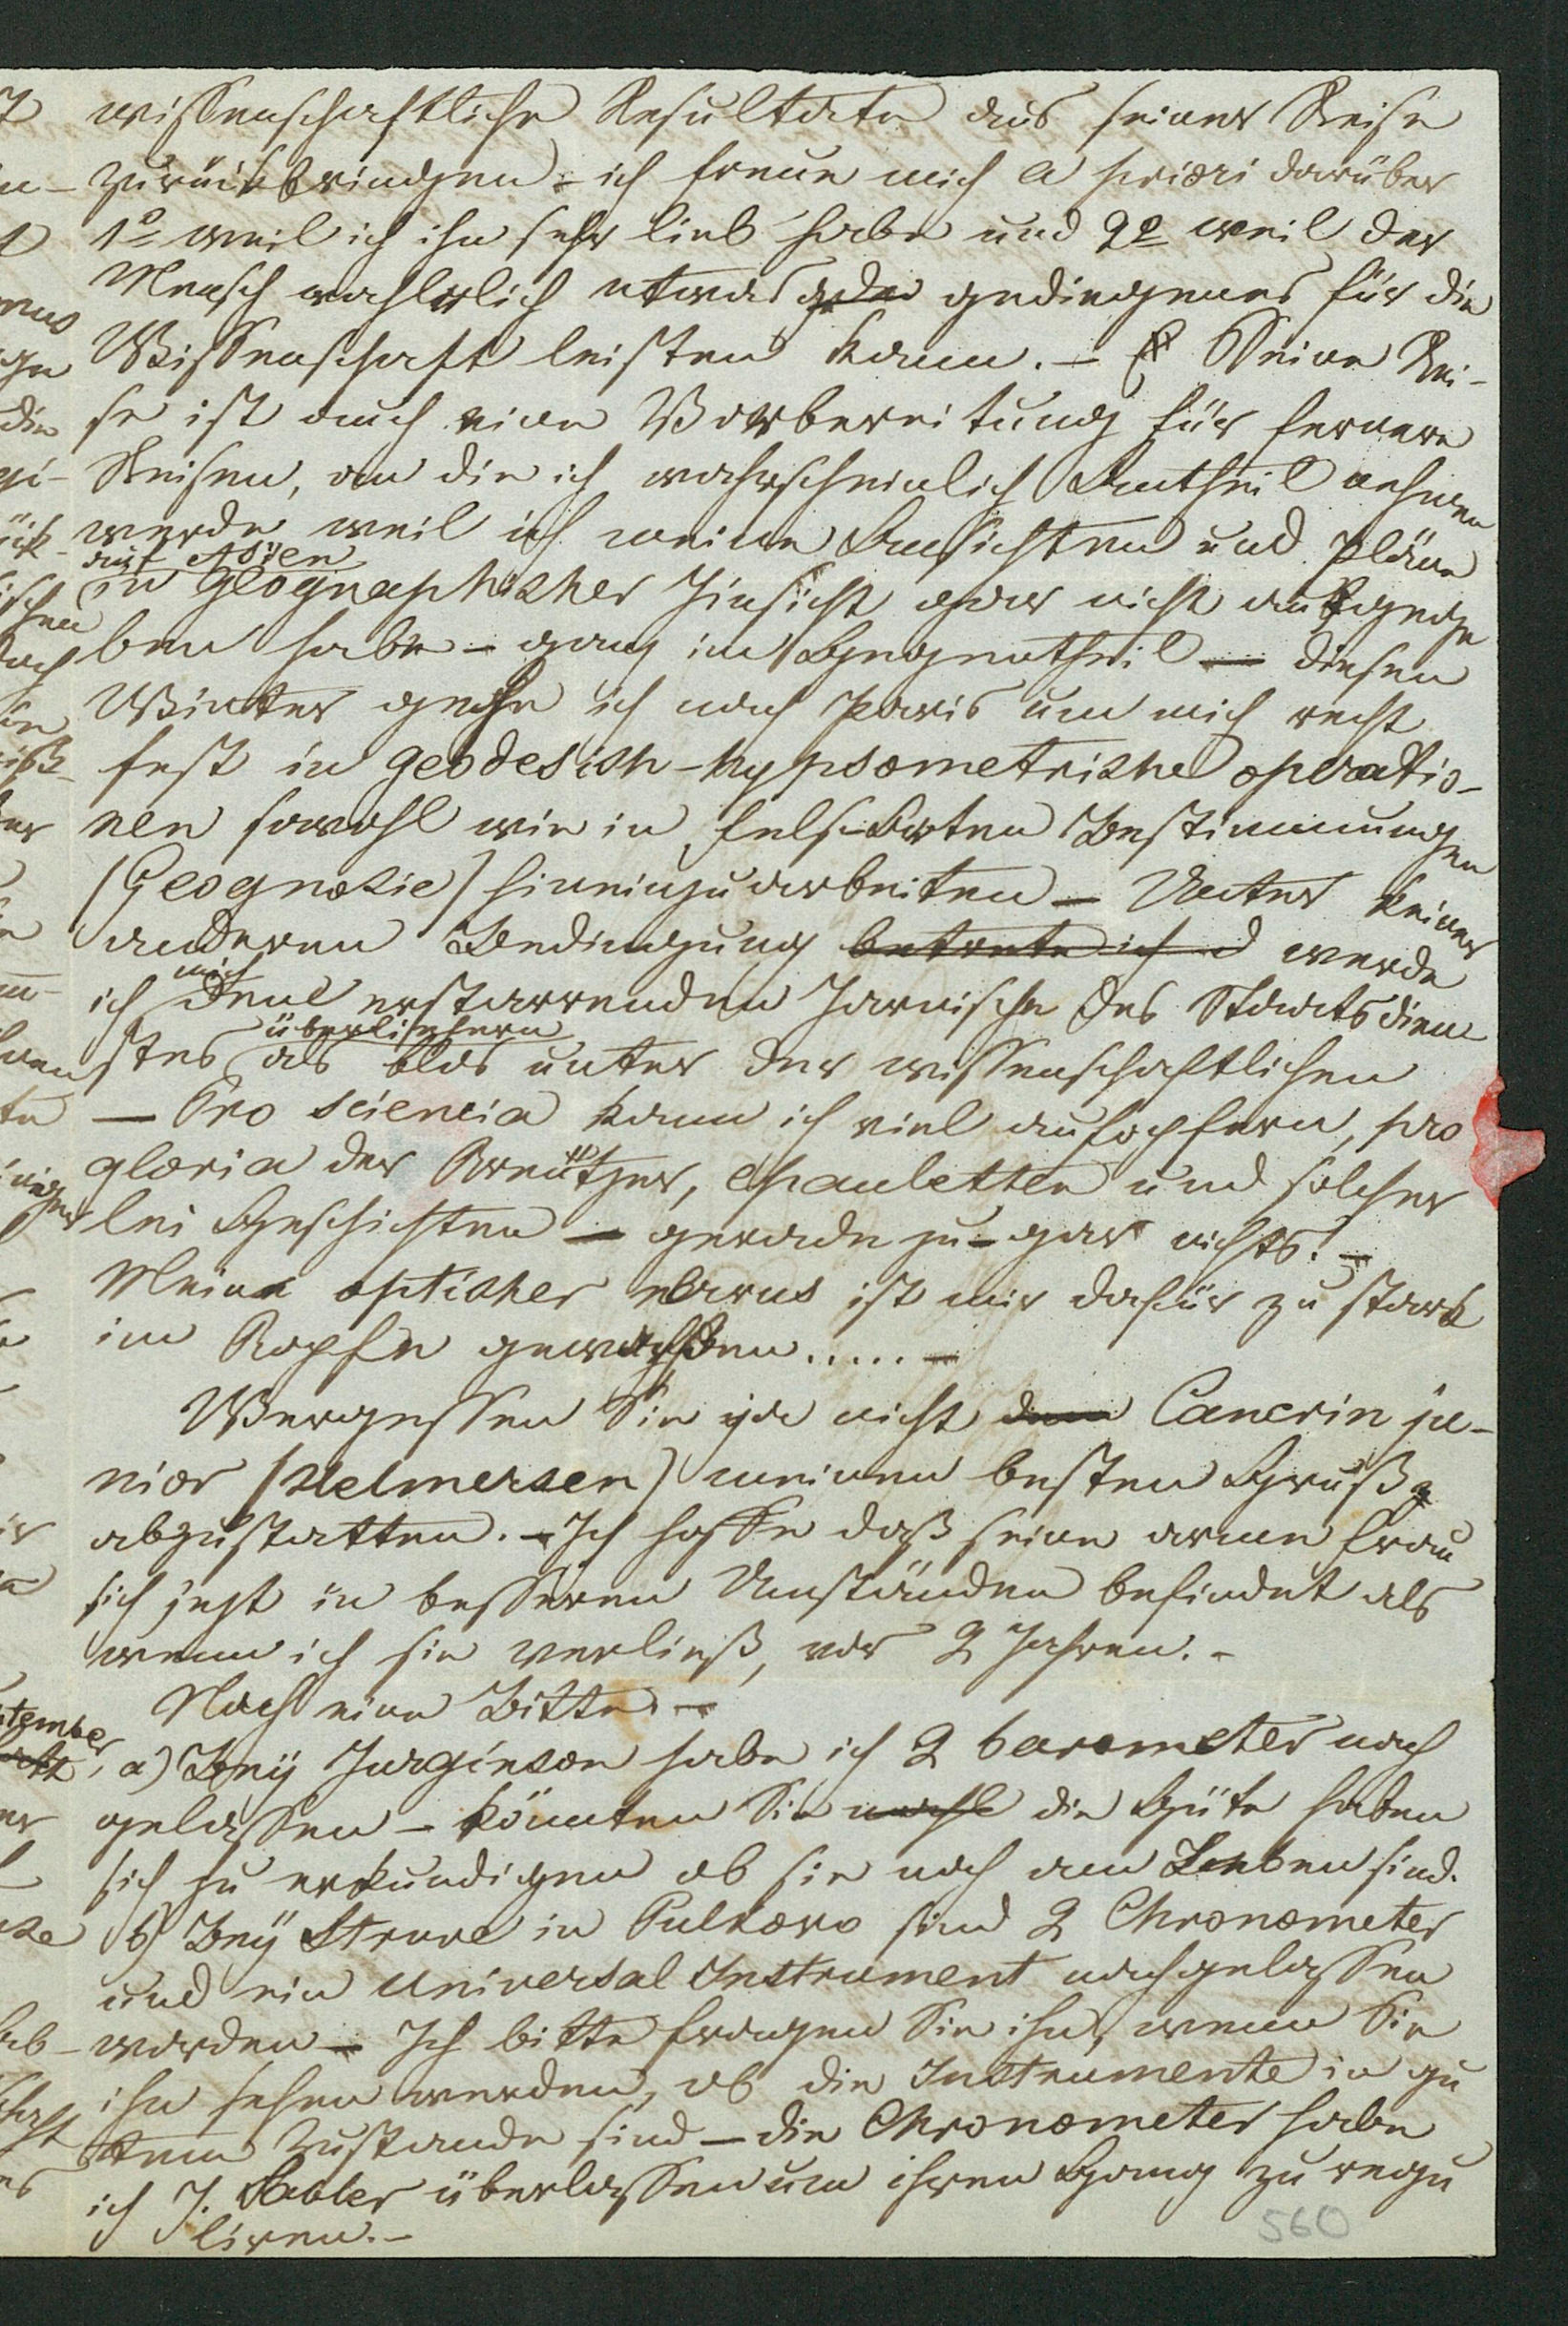 wissenschaftliche Resultate aus seiner Reise
zurückbringen – ich freue mich a priori darüber
1º weil ich ihn sehr lieb habe und 2º weil der
Mensch wahrlich etwas gediegenes für die
Wissenschaft leisten kann. – Seine Rei-
se ist auch eine Vorbereitung für fernere
Reisen, an die ich wahrscheinlich Antheil nehmen
werde, weil ich meine Ansichten und Pläne
auf Asien
in geographischer Hinsicht gar nicht aufgege
ben habe – ganz im Gegentheil – diesen
Winter gehe ich nach Paris um mich recht
fest in geodesisch-hypsometrische operatio-
nen sowohl wie in Fels-Arten Bestimmungen
(Geognosie) hineinzuarbeiten – Unter keiner
anderen Bedingung betrete ich d werde
ich mich dem erstarrenden Harnische des Staatsdien
überliefern
stes als blos unter der wissenschaftlichen
– Pro sciencia kann ich viel aufopfern, pro
gloria der Kreutzer, epauletten und solcher
lei Geschichten – gerade zu – gar nichts! –
Meine optischer nervus ist mir dafür zu stark
im Kopfe gewachsen ..... –
Vergessen Sie ja nicht dem Cancrin ju-
nior (Helmersen) meinen besten Gruß
abzustatten. – Ich hoffe daß seine arme Frau
sich jetzt in besseren Umständen befindet als
wenn ich sie verließ, vor 2 Jahren. –
Noch eine Bitte –
a) Bey Jurginson habe ich 2 barometer nach
gelassen – könnten Sie wohl die Güte haben
sich zu erkundigen ob sie noch am Leben sind.
b) Bey Struve in Pulkovo sind 2 Chronometer
und ein Universal Instrument nachgelassen
worden – Ich bitte fragen Sie ihn, wenn Sie
ihn sehen werden, ob die Instrumente in gu
tem Zustande sind – die Chronometer habe
ich J. Sabler überlassen um ihren Gang zu regu
liren. –
560